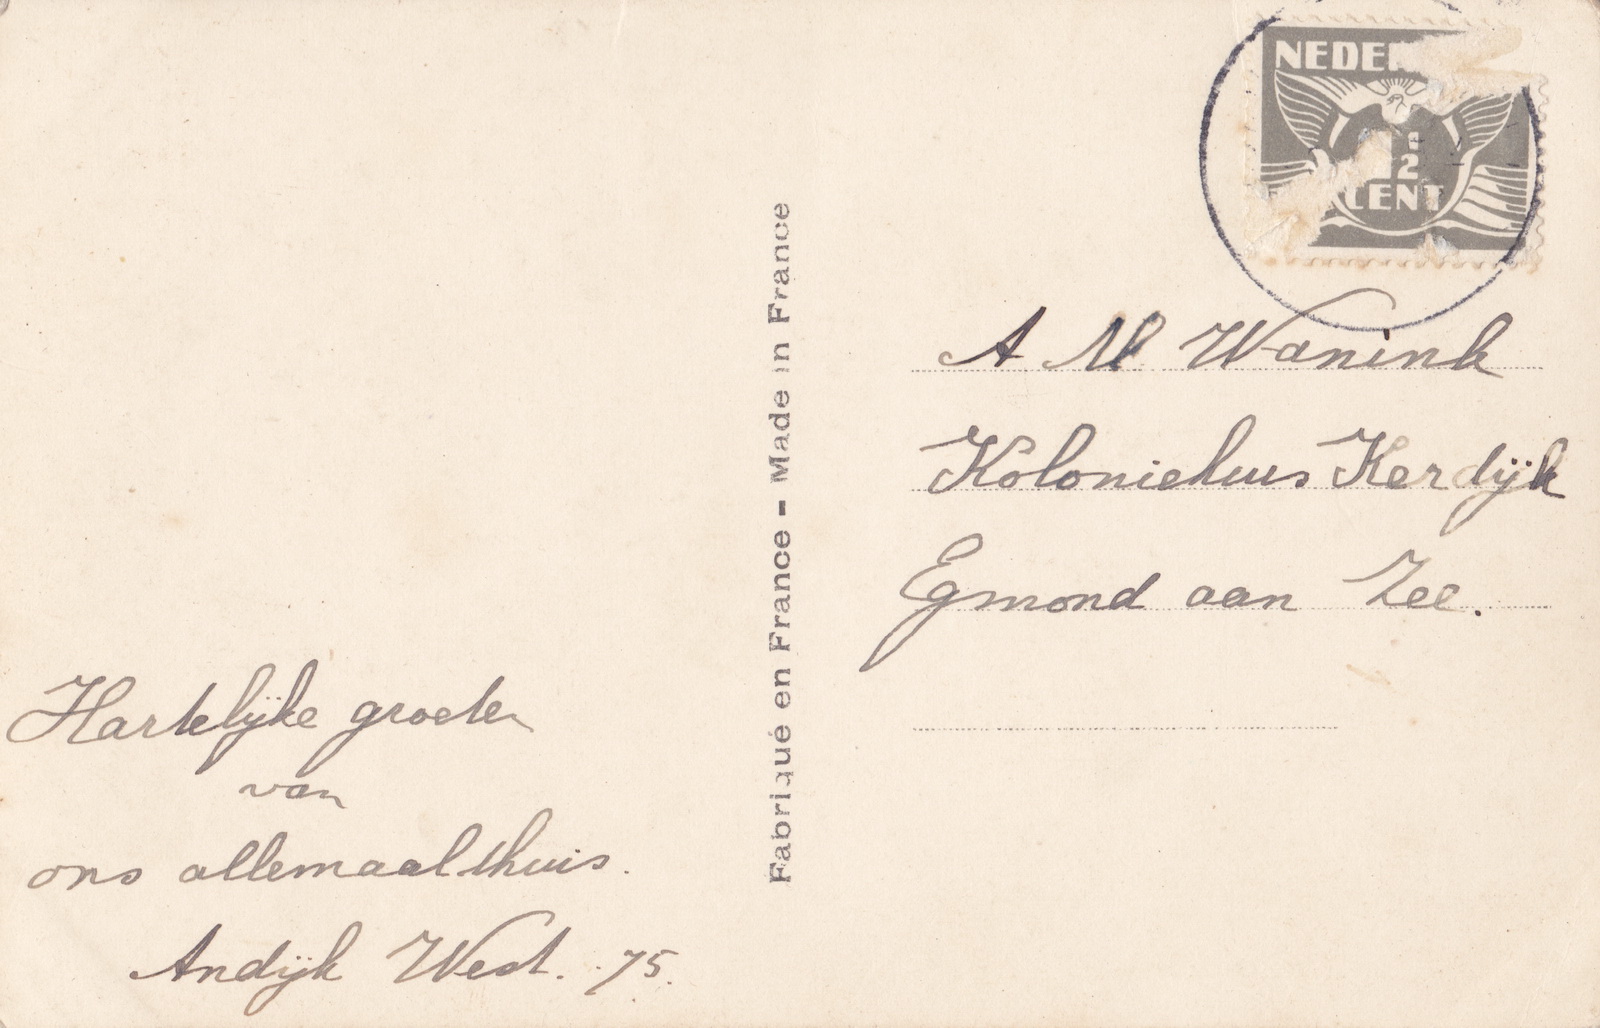 Hartelijke groeten
van
ons allemaal thuis.
Andijk West. 75.
Fabriqué en France - Made in France
NEDER
1/2
CENT
A M Wanink
Koloniehuis Kerdijk
Egmond aan Zee.